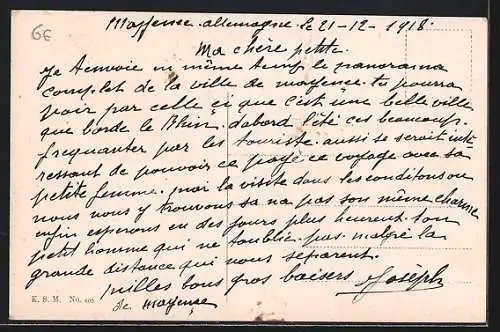 6€
Mayence allemagne le 21-12-1918.
Ma chère petite.
Je t'envoie en même temp le panorama
complet de la ville de mayence. tu pourra
voir par celle ci que c'est une belle ville
que borde le Rhin. dabord l'été ces beaucoup
frequanter par les touriste. aussi se serait inte
ressant de pouvoir ce payé ce voyage avec sa
petite femme. moi la visite dans les conditons ou
nous nous y trouvons sa na pas son même charme
enfin esperons en des jours plus heureut. ton
petit homme qui ne t'oublie pas malgré la
grande distance qui nous separent.
milles bons gros baisers Joseph
de mayence
K. S. M. No.